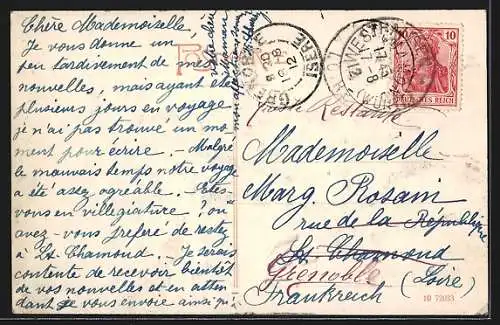 Chère Mademoiselle,
Je vous donne un
peu tardivement de mes
nouvelles, mais ayant été
plusieurs jours en voyage
je n'ai pas trouvé un mo
ment pour écrire. - Malgré
le mauvais temps notre voyage
a été assez agréable. - Etes-
vous en villégiature? ou
avez-vous préféré de rester
à St. Chamond. Je serais
contente de recevoir bientôt
de vos nouvelles et en atten
dant je vous envoie ainsi qu'
GRENOBLE
ISERE
10
DEUTSCHES REICH
Poste Restante
Mademoiselle
Marg. Rosain
rue de la République
St. Chamond
Grenoble (Loire)
Frankreich